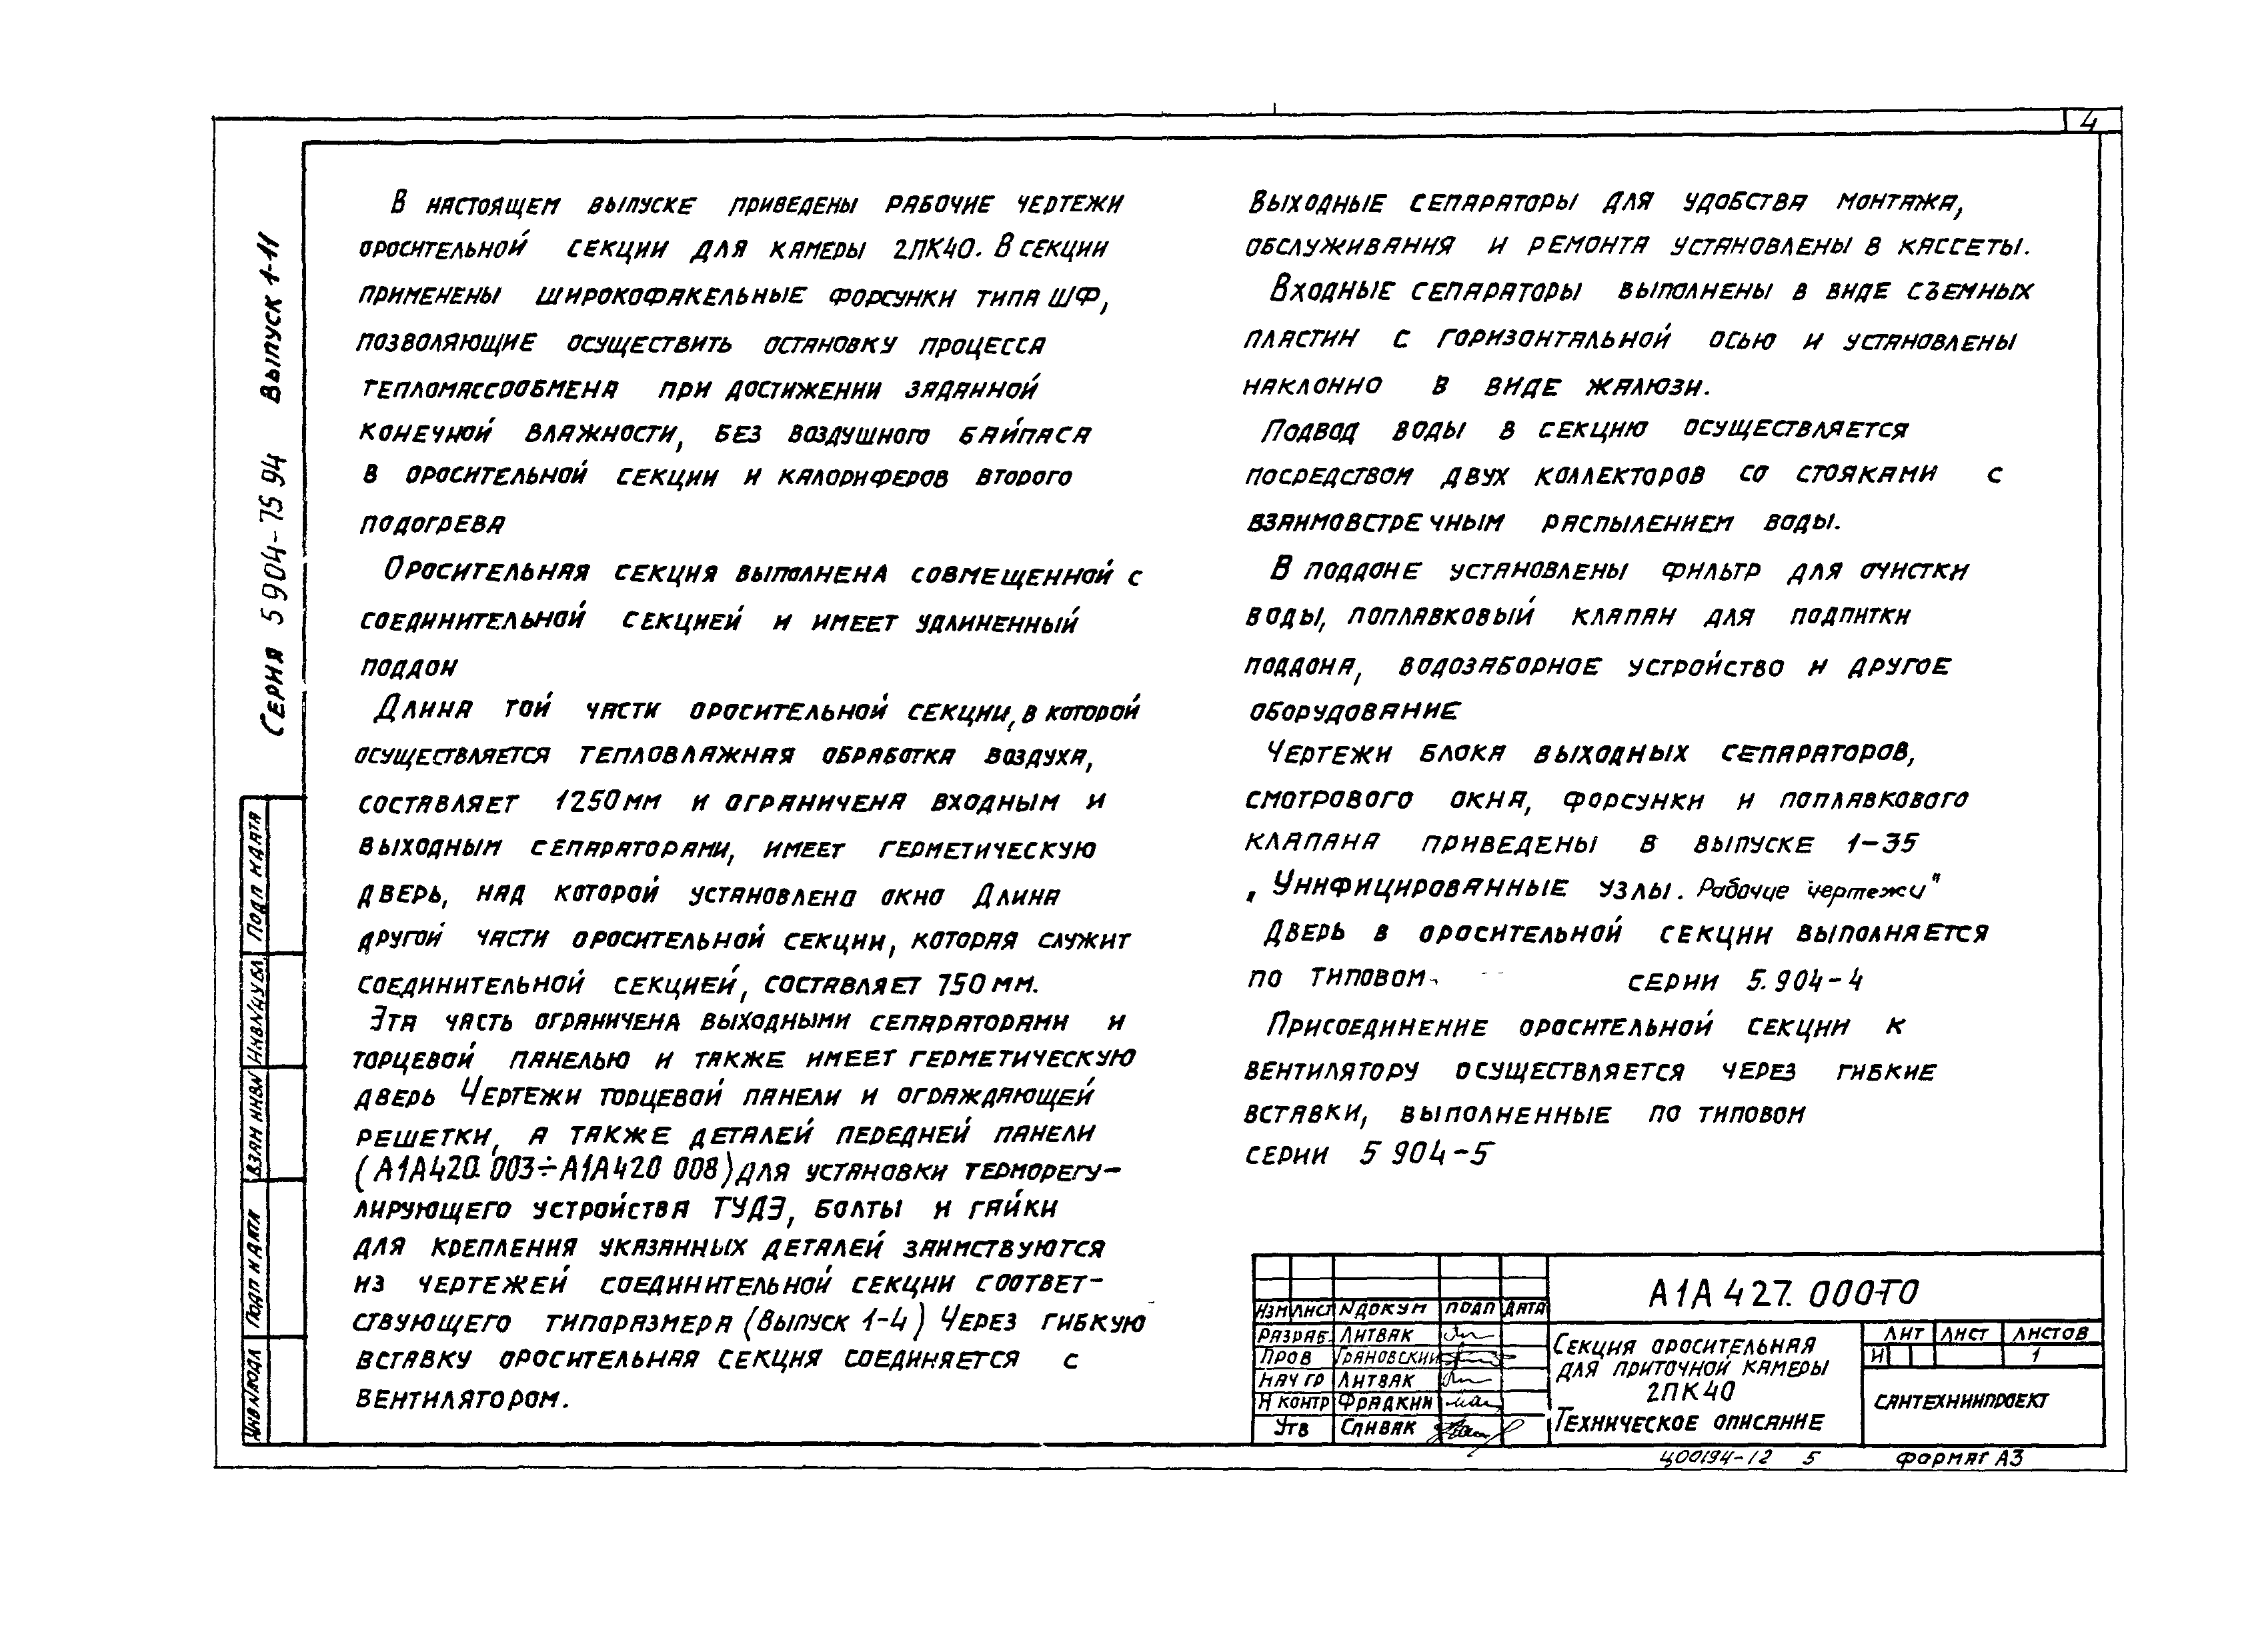 4
В настоящем выпуске приведены рабочие чертежи
оросительной секции для камеры 2ПК40. В секции
применены широкофакельные форсунки типа ШФ,
позволяющие осуществить остановку процесса
тепломассообмена при достижении заданной
конечной влажности, без воздушного байпаса
в оросительной секции и калориферов второго
подогрева
Оросительная секция выполнена совмещенной с
соединительной секцией и имеет удлиненный
поддон
Длина той части оросительной секции, в которой
осуществляется тепловлажная обработка воздуха,
составляет 1250мм и ограничена входным и
выходным сепараторами, имеет герметическую
дверь, над которой установлено окно Длина
другой части оросительной секции, которая служит
соединительной секцией, составляет 750 мм.
Эта часть ограничена выходными сепараторами и
торцевой панелью и также имеет герметическую
дверь Чертежи торцевой панели и ограждающей
решетки, а также деталей передней панели
(А1А420.003÷А1А420 008) для установки терморегу-
лирующего устройства ТУДЭ, болты и гайки
для крепления указанных деталей заимствуются
из чертежей соединительной секции соответ-
ствующего типоразмера (Выпуск 1-4) Через гибкую
вставку оросительная секция соединяется с
вентилятором.
Выходные сепараторы для удобства монтажа,
обслуживания и ремонта установлены в кассеты.
Входные сепараторы выполнены в виде съемных
пластин с горизонтальной осью и установлены
наклонно в виде жалюзи.
Подвод воды в секцию осуществляется
посредством двух коллекторов со стояками с
взаимовстречным распылением воды.
В поддоне установлены фильтр для очистки
воды, поплавковый клапан для подпитки
поддона, водозаборное устройство и другое
оборудование
Чертежи блока выходных сепараторов,
смотрового окна, форсунки и поплавкового
клапана приведены в выпуске 1-35
„Унифицированные узлы. Рабочие чертежи"
Дверь в оросительной секции выполняется
по типовом серии 5.904-4
Присоединение оросительной секции к
вентилятору осуществляется через гибкие
вставки, выполненные по типовом
серии 5 904-5
Серия 5 904-75 94 Выпуск 1-11
Подп и дата
Инв№дубл
Взам инв№
Подп и дата
Инв№подл
А1А 427. 000ТО
Изм Лист №докум Подп Дата
Разраб Литвак
Пров Грановский
Нач гр Литвак
Н контр Фрадкин
Утв Спивак
Секция оросительная
для приточной камеры
2ПК40
Техническое описание
Лит Лист Листов
И 1
Сантехниипроект
Ц00194-12 5 Формат А3